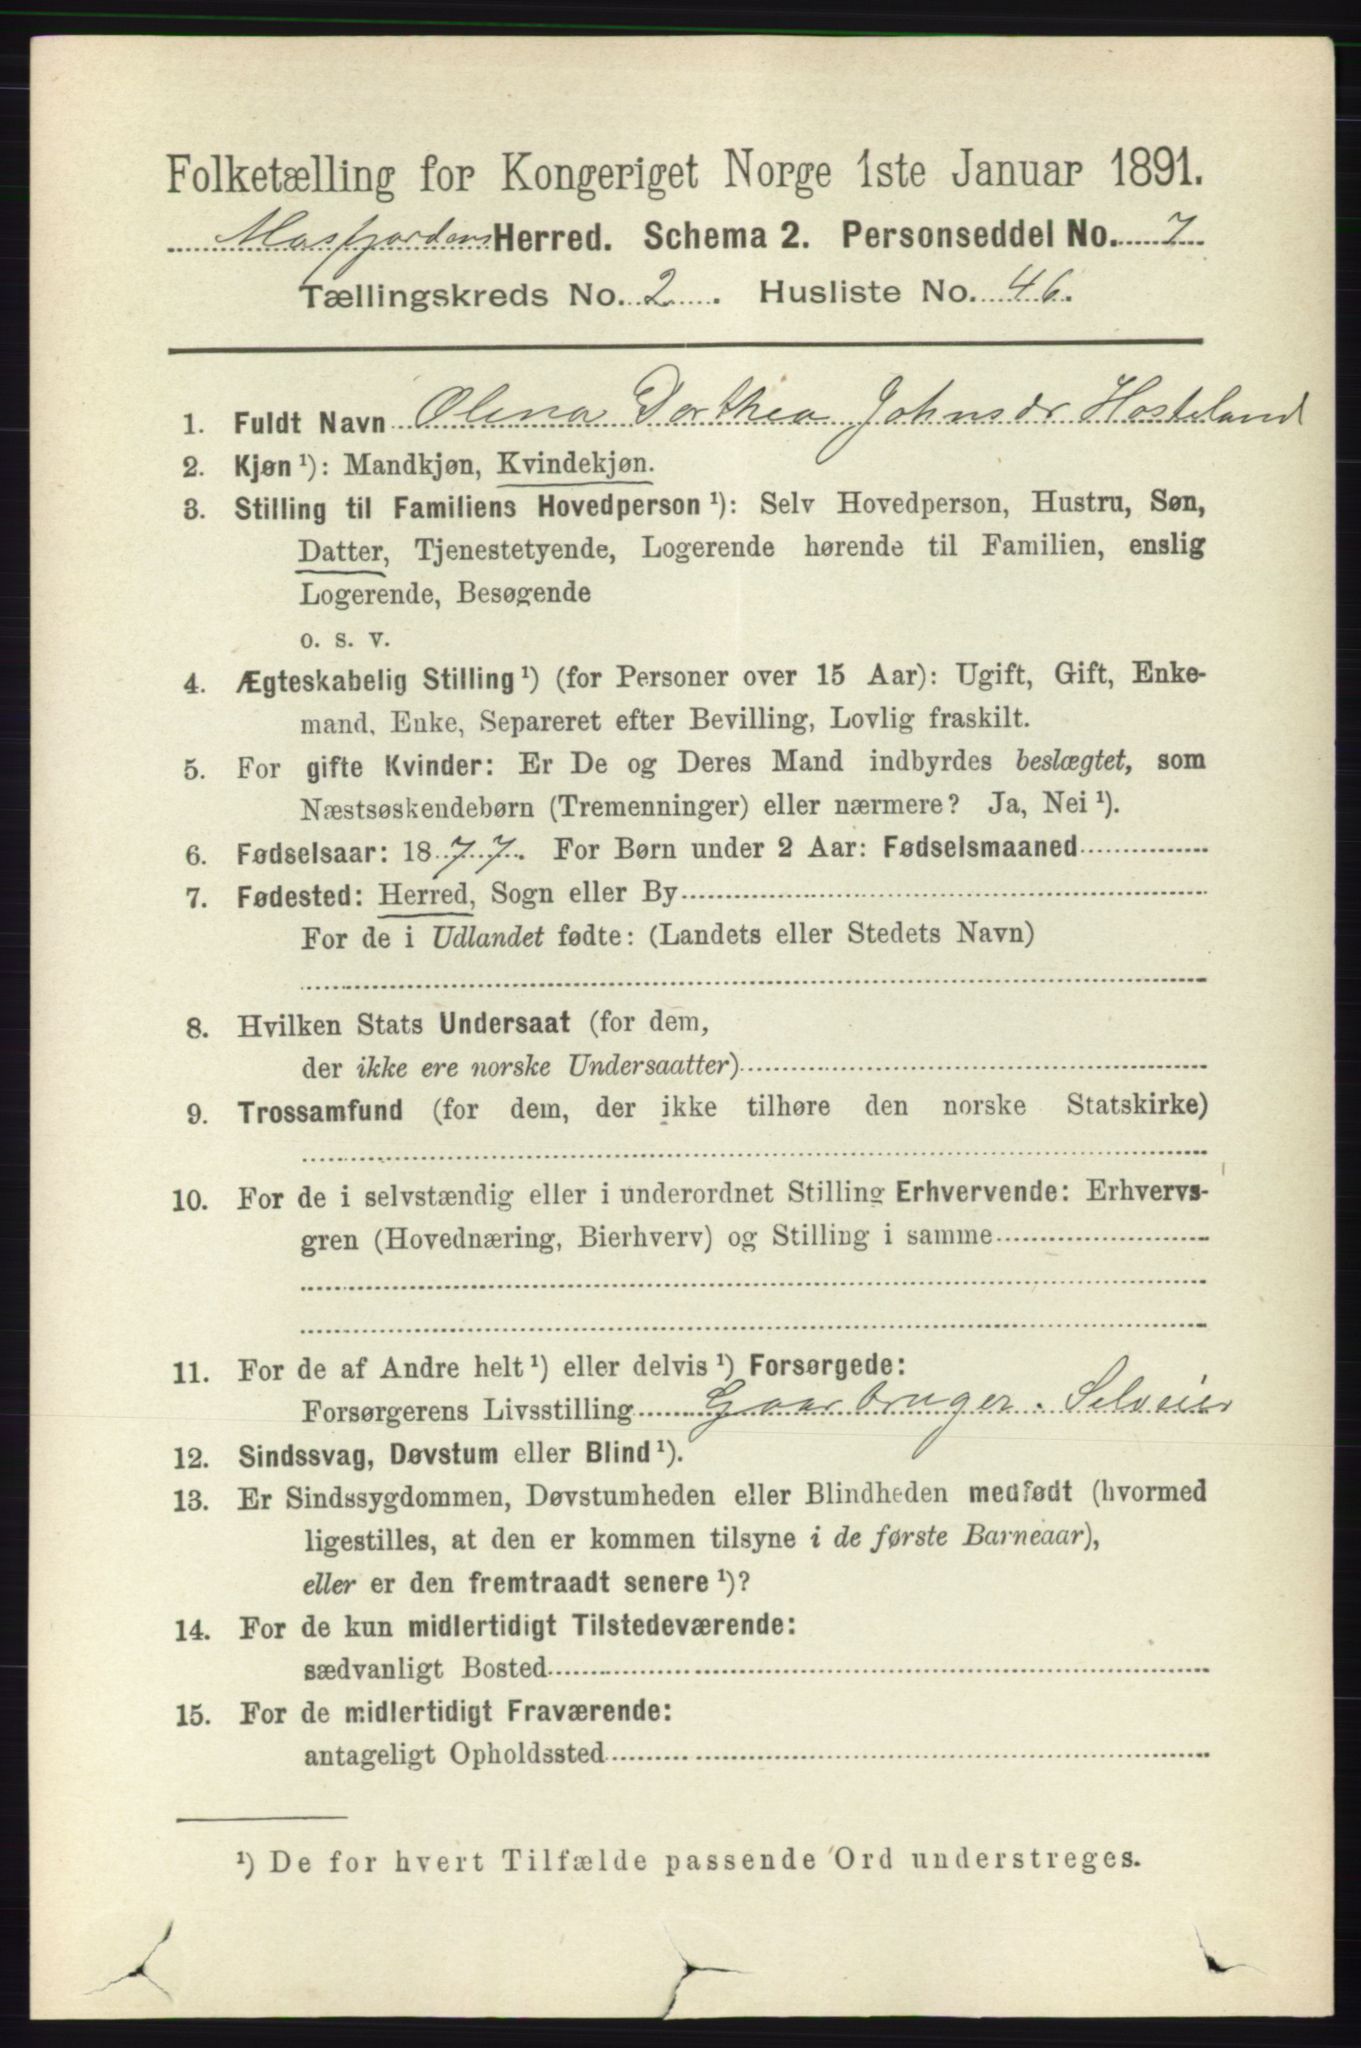 Folketælling for Kongeriget Norge 1ste Januar 1891.
Masfjordens Herred. Schema 2. Personseddel No. 7
Tællingskreds No. 2. Husliste No. 46.
1. Fuldt Navn Olina Dorthea Johnsdr Hosteland
2. Kjøn ¹): Mandkjøn, Kvindekjøn.
3. Stilling til Familiens Hovedperson ¹): Selv Hovedperson, Hustru, Søn,
Datter, Tjenestetyende, Logerende hørende til Familien, enslig
Logerende, Besøgende
o. s. v.
4. Ægteskabelig Stilling ¹) (for Personer over 15 Aar): Ugift, Gift, Enke-
mand, Enke, Separeret efter Bevilling, Lovlig fraskilt.
5. For gifte Kvinder: Er De og Deres Mand indbyrdes beslægtet, som
Næstsøskendebørn (Tremenninger) eller nærmere? Ja, Nei ¹).
6. Fødselsaar: 1877. For Børn under 2 Aar: Fødselsmaaned
7. Fødested: Herred, Sogn eller By
For de i Udlandet fødte: (Landets eller Stedets Navn)
8. Hvilken Stats Undersaat (for dem,
der ikke ere norske Undersaatter)
9. Trossamfund (for dem, der ikke tilhøre den norske Statskirke)
10. For de i selvstændig eller i underordnet Stilling Erhvervende: Erhvervs-
gren (Hovednæring, Bierhverv) og Stilling i samme
11. For de af Andre helt ¹) eller delvis ¹) Forsørgede:
Forsørgerens Livsstilling Gaarbruger. Selveier
12. Sindssvag, Døvstum eller Blind ¹).
13. Er Sindssygdommen, Døvstumheden eller Blindheden medfødt (hvormed
ligestilles, at den er kommen tilsyne i de første Barneaar),
eller er den fremtraadt senere ¹)?
14. For de kun midlertidigt Tilstedeværende:
sædvanligt Bosted
15. For de midlertidigt Fraværende:
antageligt Opholdssted
¹) De for hvert Tilfælde passende Ord understreges.